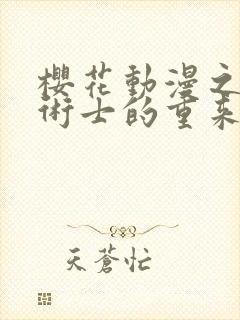 櫻花動漫之
術士的重来
天蒼忙